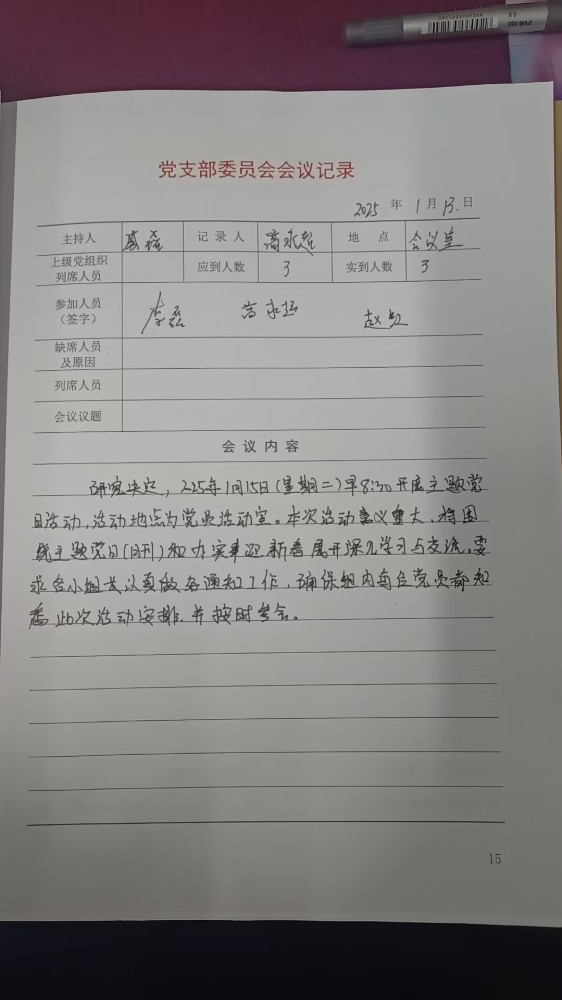 党支部委员会会议记录
2025 年 1 月 13 日
主持人 记录人 高永超 地点 会议室
上级党组织列席人员 应到人数 3 实到人数 3
参加人员（签字） 李磊 高永超 赵
缺席人员及原因
列席人员
会议议题
会议内容
研究决定，2025年1月15日(星期二)早8:30开展主题党
日活动，活动地点为党员活动室。本次活动意义重大，将围
绕主题党日(月刊)和办实事迎新春展开深入学习与交流。要
求各小组长认真做各通知工作，确保组内每位党员都知
悉此次活动安排，并按时参会。
15